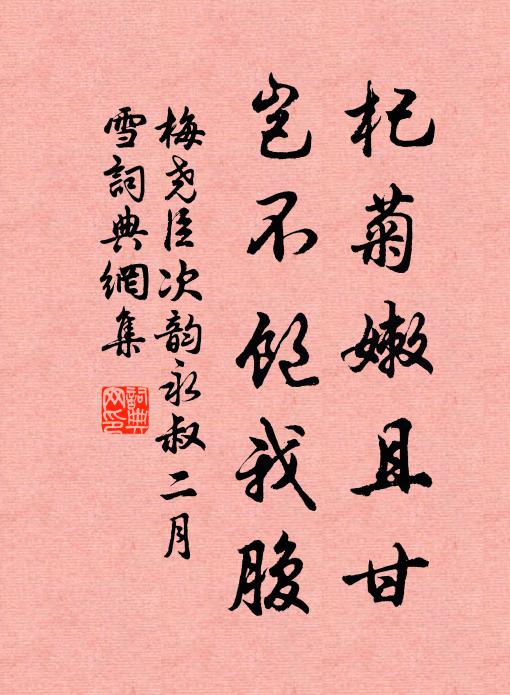 杞菊嫩且甘
豈不飽我腹
梅堯臣次韵永叔二月
雪詞典網集
詞典网印